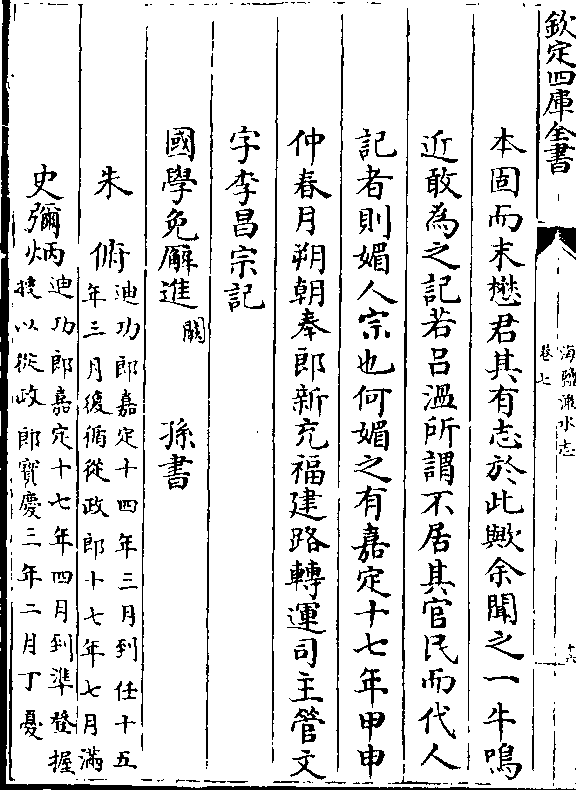 欽定四庫全書
海鹽澉水志
卷七
十六
本固而末懋君其有志於此歟余聞之一牛鳴
近敢為之記若呂溫所謂不居其官民而代人
記者則媚人宗也何媚之有嘉定十七年甲申
仲春月朔朝奉郎新充福建路轉運司主管文
字李昌宗記
國學免廨進闕 孫書
朱脩迪功郎嘉定十四年三月到任十五
年三月後循從政郎十七年七月滿
史彌炳迪功郎嘉定十七年四月到準登握
授以從政郎寶慶三年二月丁憂